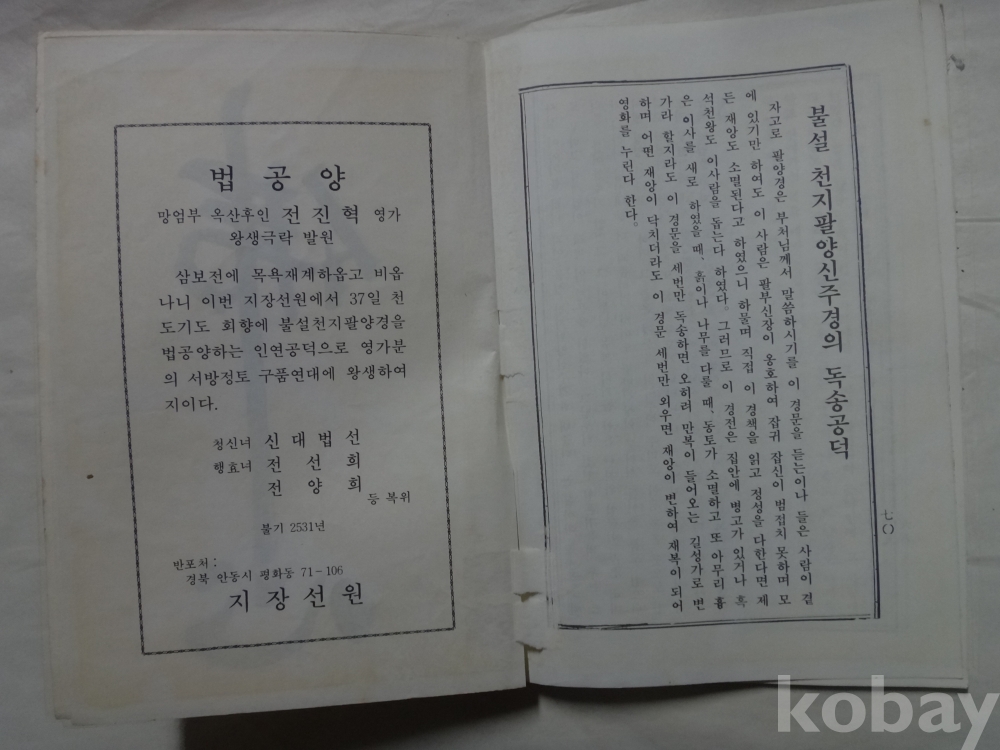 법 공 양
망엄부 옥산후인 전진혁 영가
왕생극락 발원
삼보전에 목욕재계하옵고 비옵
나니 이번 지장선원에서 37일 천
도기도 회향에 불설천지팔양경을
법공양하는 인연공덕으로 영가분
의 서방정토 구품연대에 왕생하여
지이다.
청신녀 신 대 법 선
행효녀 전 선 희
전 양 희
등 복위
불기 2531년
반포처 :
경북 안동시 평화동 71-106
지 장 선 원
불설 천지팔양신주경의 독송공덕
자고로 팔양경은 부처님께서 말씀하시기를 이 경문을 듣는이나 들은 사람이 곁
에 있기만 하여도 이 사람은 팔부신장이 옹호하여 잡귀 잡신이 범접치 못하며 모
든 재앙도 소멸된다고 하였으니 하물며 직접 이 경책을 읽고 정성을 다한다면 제
석천왕도 이사람을 돕는다 하였다. 그러므로 이 경전은 집안에 병고가 있거나 혹
은 이사를 새로 하였을 때, 흙이나 나무를 다룰 때, 동토가 소멸하고 또 아무리 흉
가라 할지라도 이 경문을 세번만 독송하면 오히려 만복이 들어오는 길성가로 변
하며 어떤 재앙이 닥치더라도 이 경문 세번만 외우면 재앙이 변하여 재복이 되어
영화를 누린다 한다.
七〇
kobay